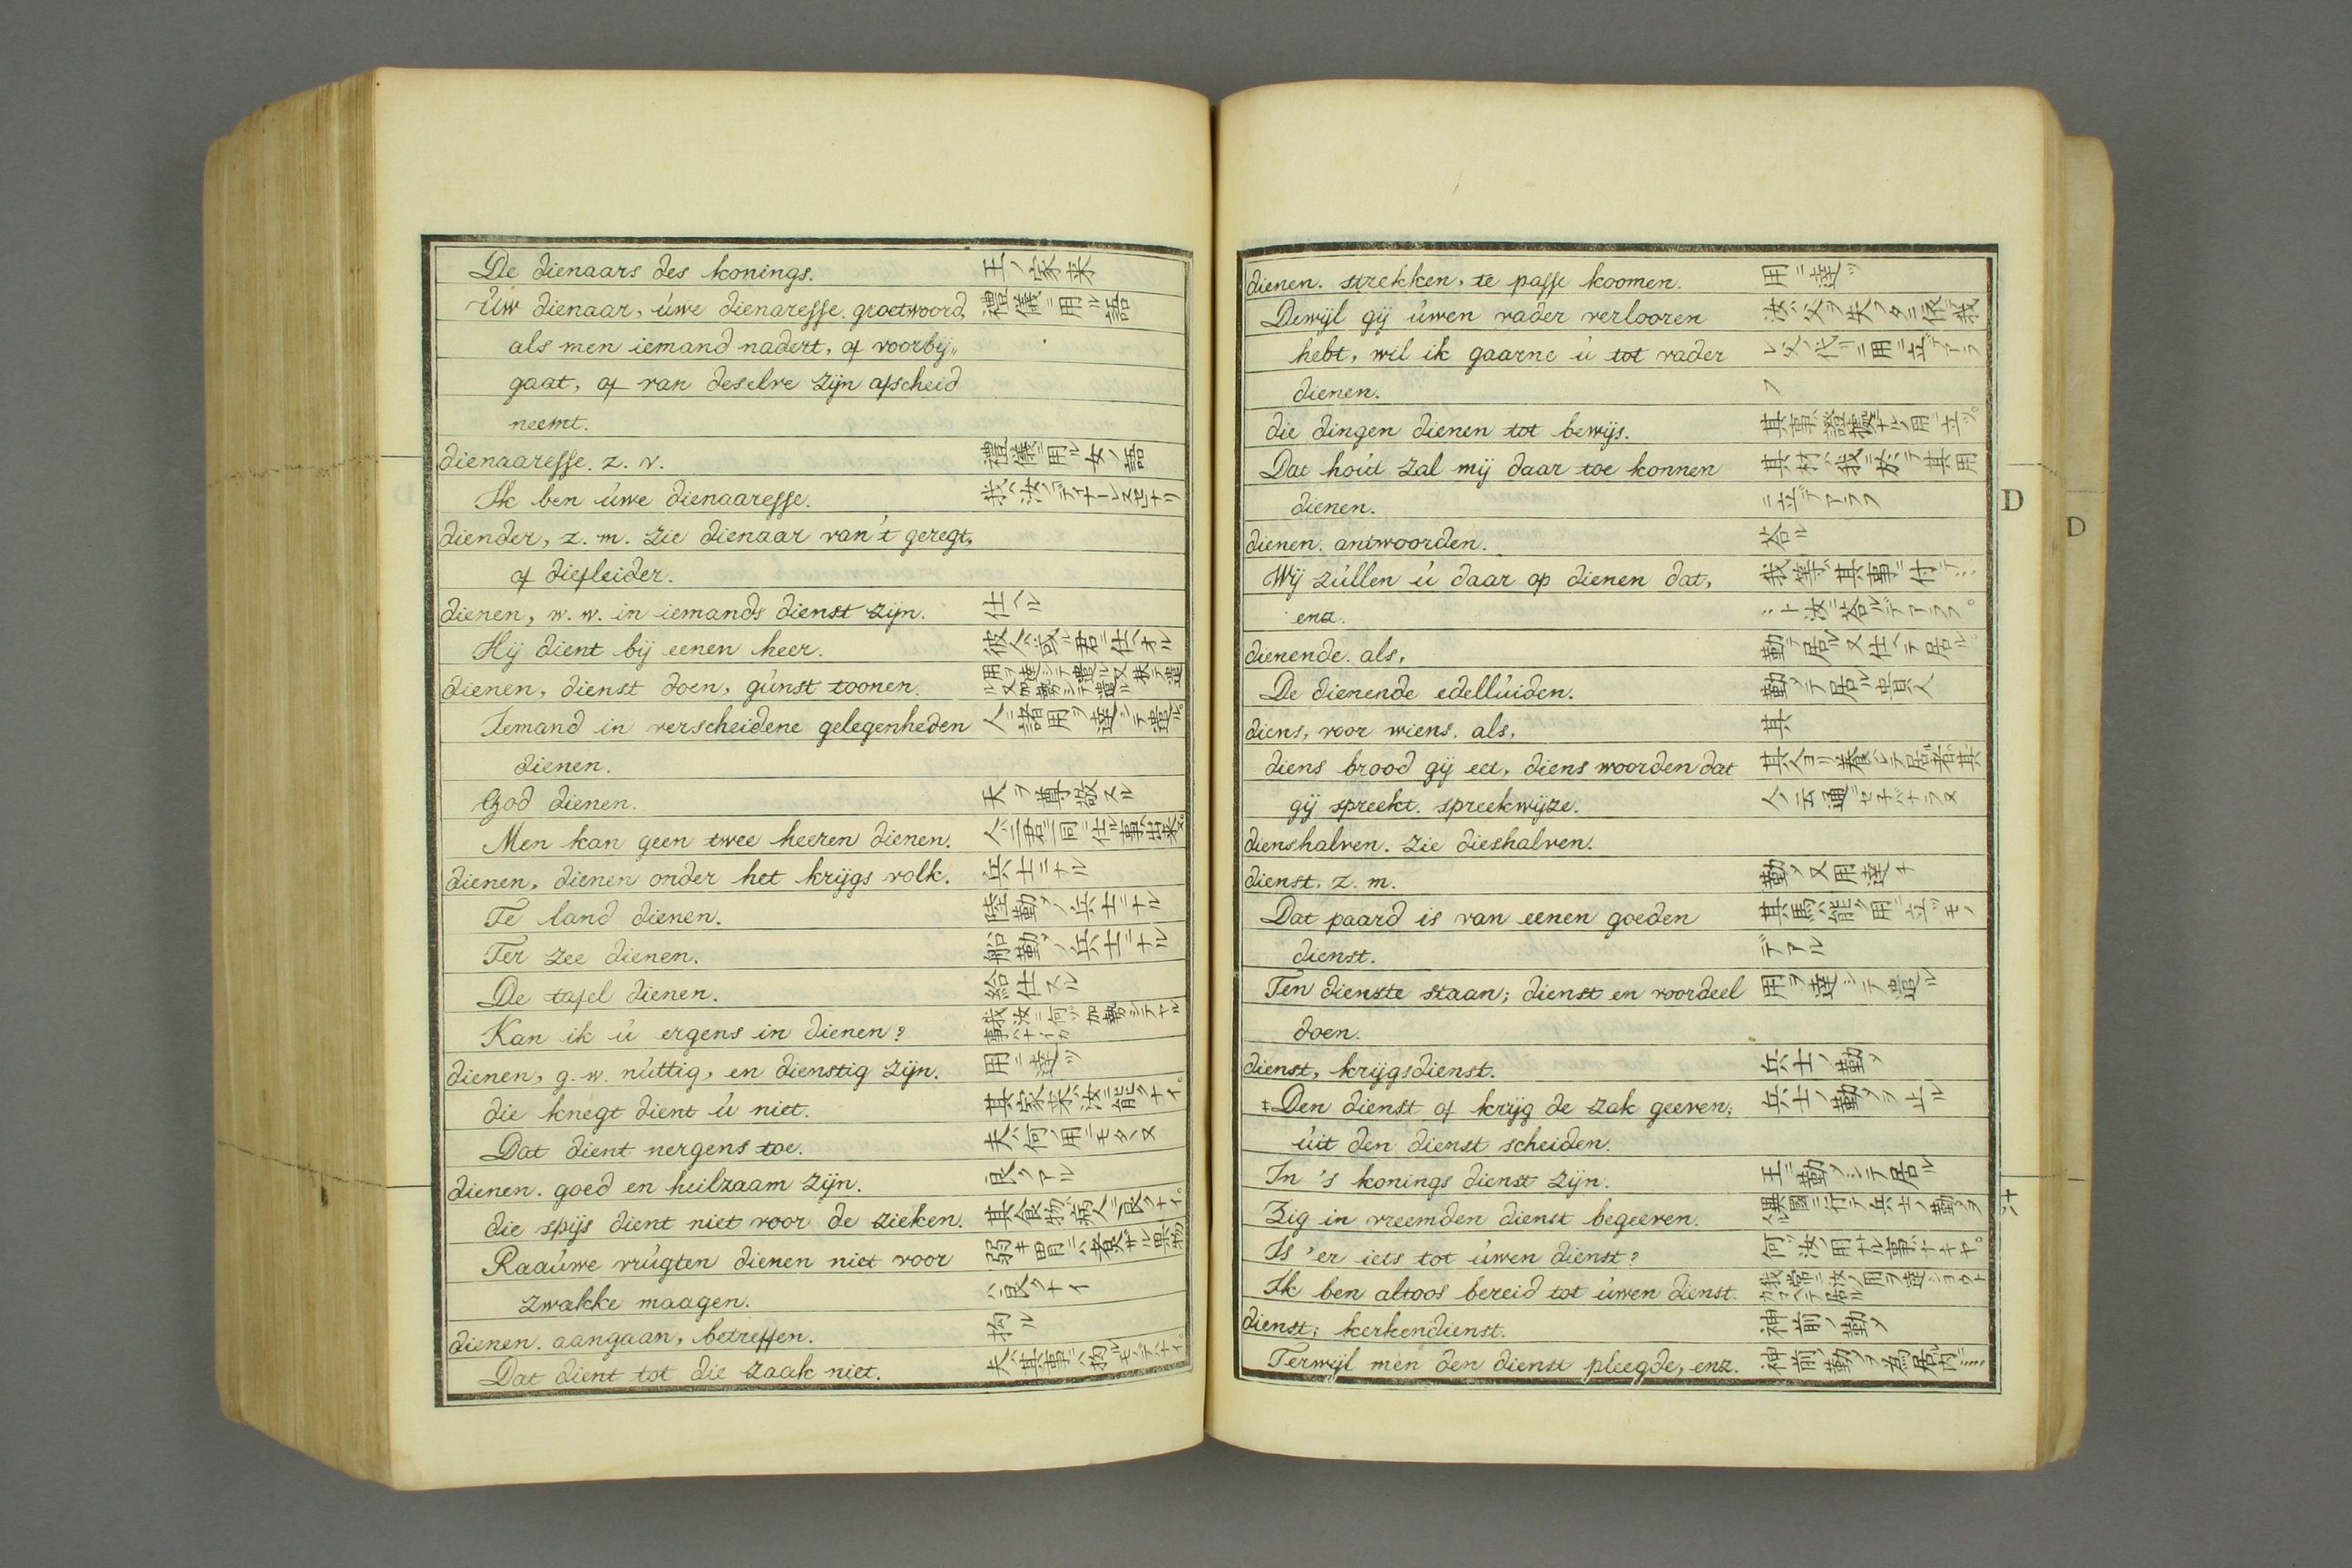 De dienaars des konings. 王ノ家来
Uw dienaar, úwe dienaresse. groetwoord, 禮儀ニ用ル語
als men iemand nadert, of voorbij„
gaat, of van deselve zijn afscheid
neemt.
dienaaresse. z. v. 禮儀ニ用ル女ノ語
Ik ben úwe dienaaresse.
diender, z. m. zie dienaar van't geregt,
of diefleider.
dienen, w. w. in iemands dienst zijn. 仕ヘル
Hij dient bij eenen heer.
dienen, dienst doen, gúnst toonen.
Iemand in verscheidene gelegenheden 人ニ諸用ヲ達シテ遣ル。
dienen.
God dienen. 天ヲ尊敬スル
Men kan geen twee heeren dienen.
dienen, dienen onder het krijgs volk. 兵士ニナル
Te land dienen. 陸勤メノ兵士ニナル
Ter zee dienen. 船勤メノ兵士ニナル
De tafel dienen. 給仕スル
Kan ik ú ergens in dienen?
dienen, g. w. núttig, en dienstig zijn. 用ニ達ツ
die knegt dient ú niet. 其家来ハ汝ニ能クナイ。
Dat dient nergens toe. 夫ハ何ノ用ニモタヽヌ
dienen. goed en heilzaam zijn. 良クアル
die spijs dient niet voor de zieken. 其食物ハ病人ニ良クナイ。
Raaúwe vrúgten dienen niet voor 弱キ胃ニハ煮ザル果物
zwakke maagen. ハ良クナイ
dienen. aangaan, betreffen. 拘ル
Dat dient tot die zaak niet. 夫ハ其事ニハ拘ルモノデナイ。
dienen. strekken, te passe koomen. 用ニ達ツ
Dewijl gij úwen vader verlooren 汝ハ父ヲ失フタニ依我
hebt, wil ik gaarne ú tot vader
dienen. フ
die dingen dienen tot bewijs.
Dat hoút zal mij daar toe konnen 其材ハ我ニ於テ其用
dienen. ニ立デアラフ
dienen. antwoorden. 答ル
Wij zúllen ú daar op dienen dat, 我等ガ其事ニ付テ…
enz. …ト汝ニ答ルデアラフ。
dienende. als, 勤テ居ル又仕ヘテ居ル。
De dienende edellúiden. 勤メテ居ル貴人
diens, voor wiens. als, 其
diens brood gij eet, diens woorden dat
gij spreekt. spreekwijze.
dienshalven. zie dieshalven.
dienst. z. m. 勤メ又用達チ
Dat paard is van eenen goeden 其馬ハ能ク用ニ立ツモノ
dienst. デアル
Ten dienste staan; dienst en voordeel 用ヲ達シテ遣ル
doen.
dienst, krijgsdienst. 兵士ノ勤メ
‡Den dienst of krijg de zak geeven; 兵士ノ勤メヲ止ル
úit den dienst scheiden.
In 's konings dienst zijn. 王ニ勤メシテ居ル
Zig in vreemden dienst begeeven.
Is 'er iets tot úwen dienst?
Ik ben altoos bereid tot úwen dienst.
dienst; kerkendienst. 神前ノ勤メ
Terwijl men den dienst pleegde, enz.
D
D